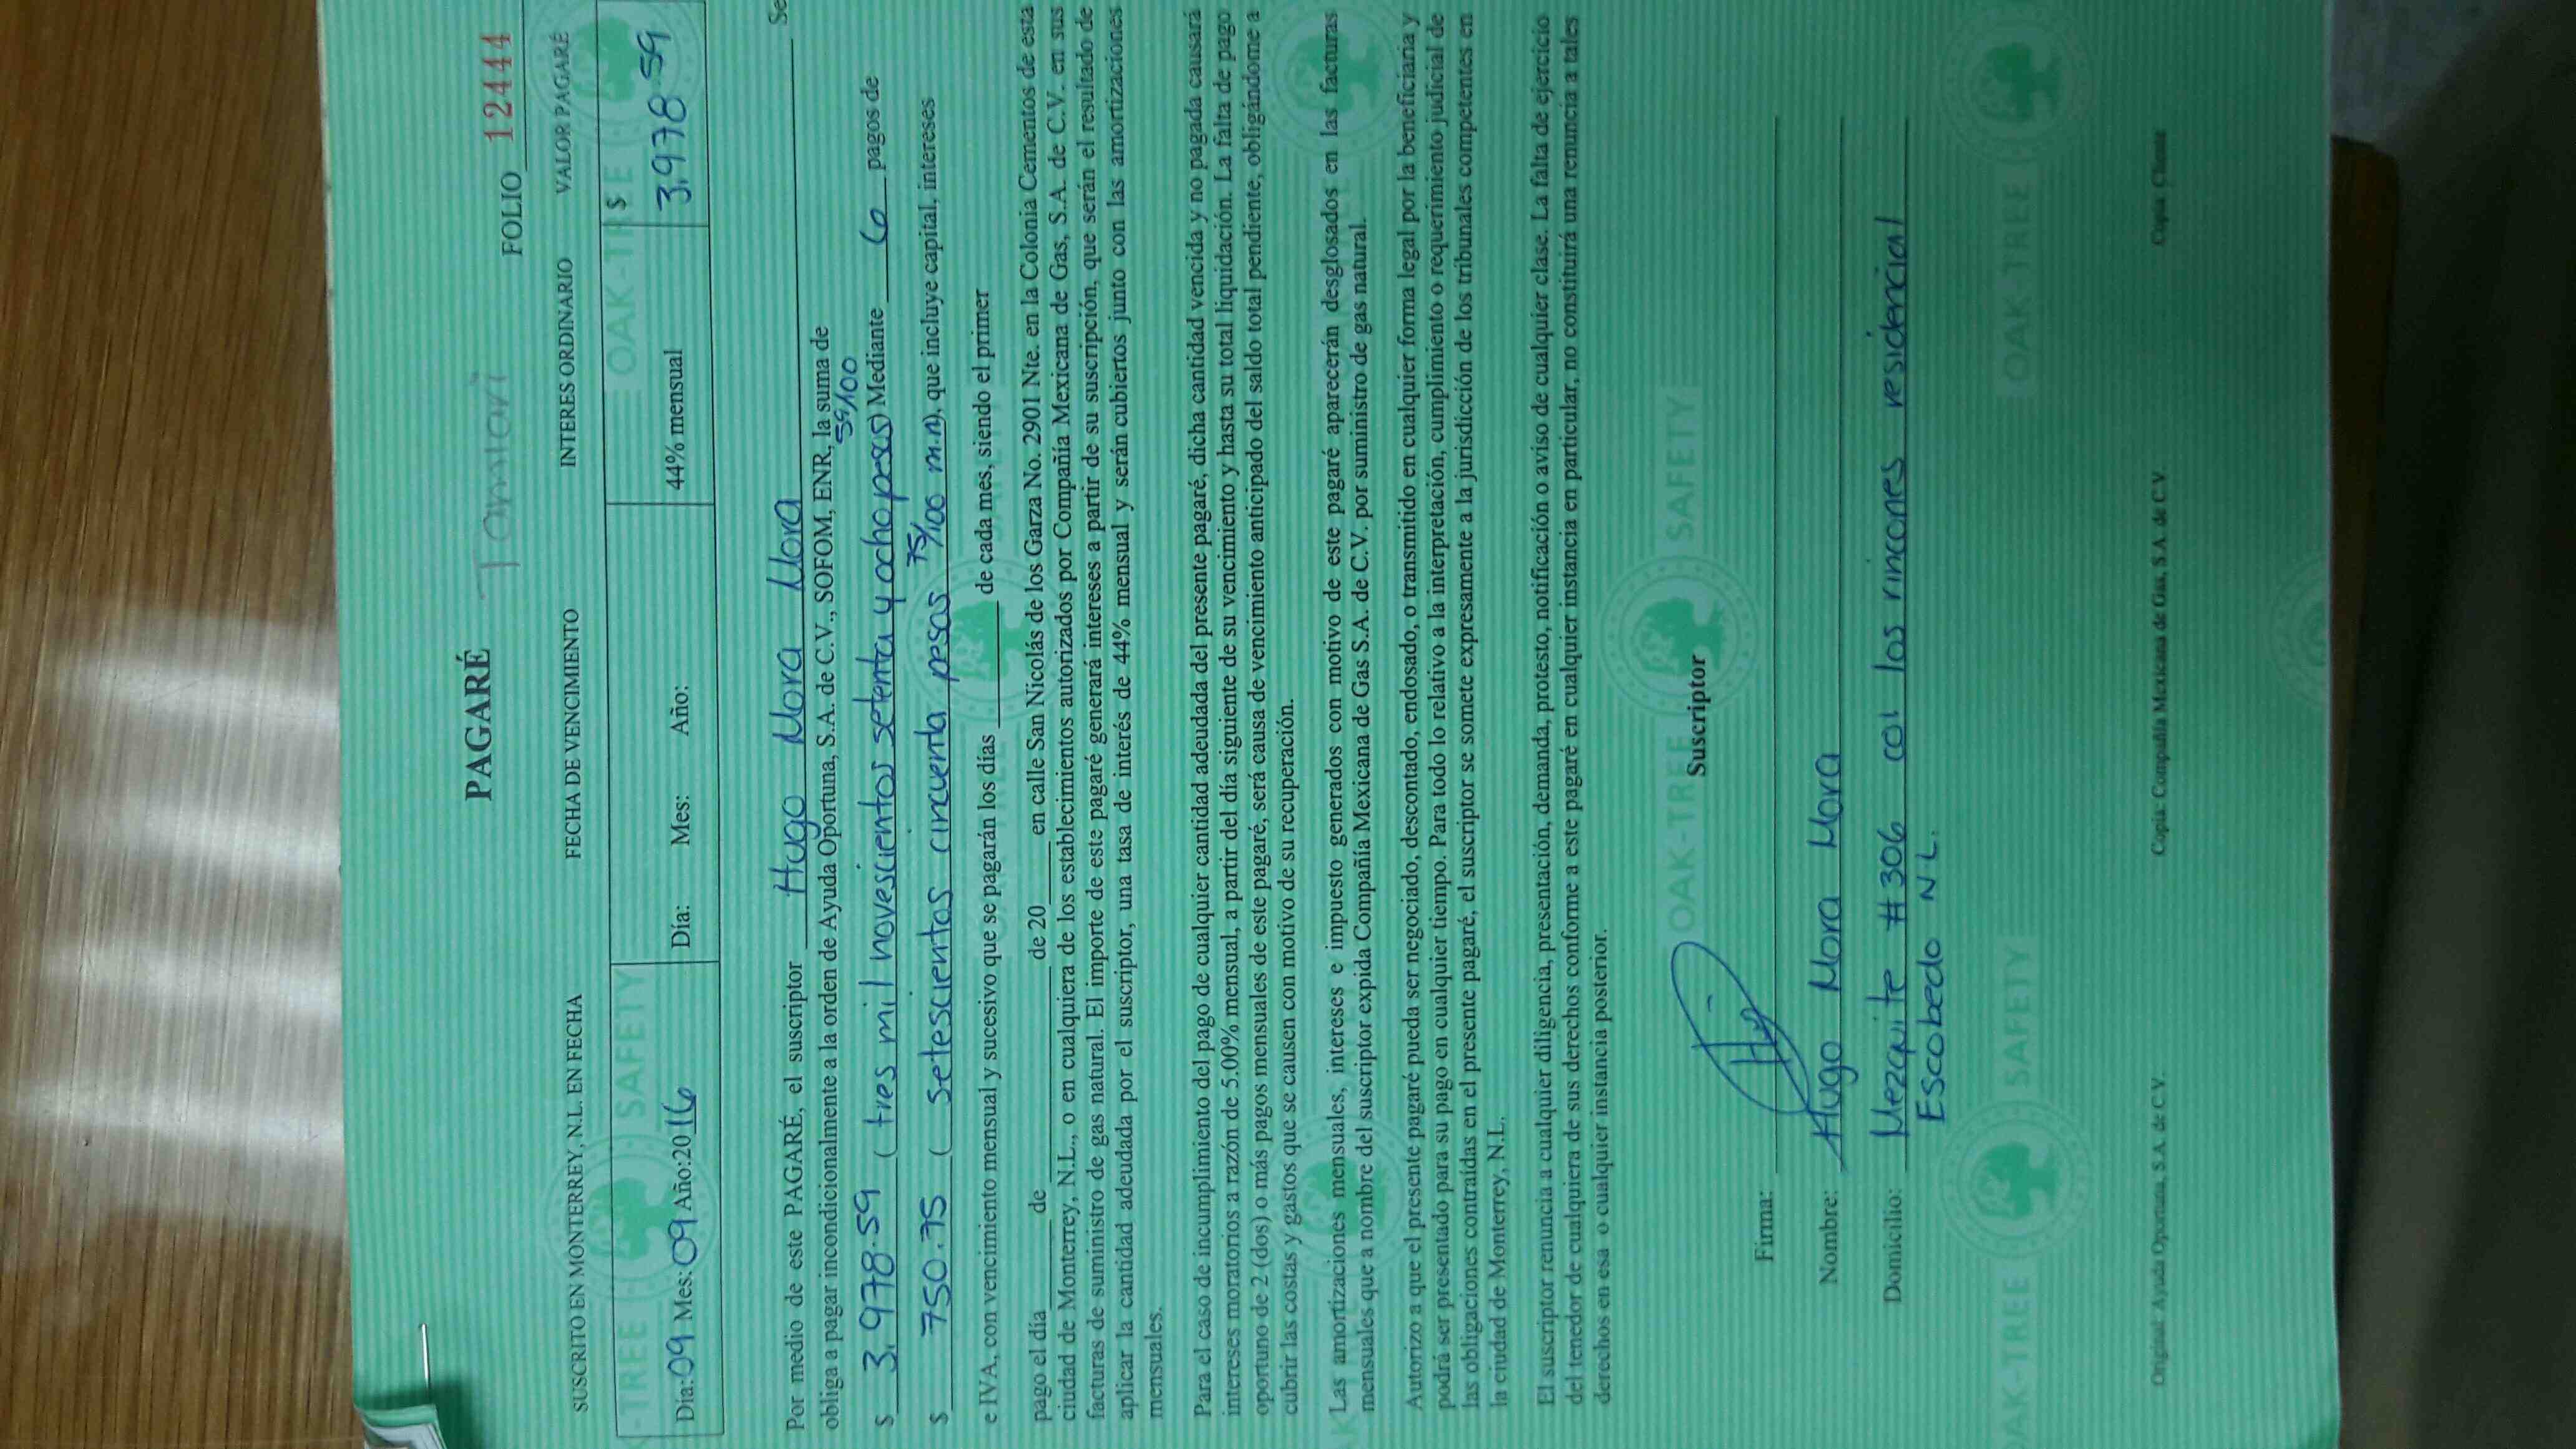 PAGARÉ Tamiari
FOLIO 12444
SUSCRITO EN MONTERREY, N.L. EN FECHA FECHA DE VENCIMIENTO INTERES ORDINARIO VALOR PAGARÉ
Día:09 Mes:09 Año:2016 Día: Mes: Año: 44% mensual $ 3,978 59
Por medio de este PAGARÉ, el suscriptor Hugo Mora Mora Se
obliga a pagar incondicionalmente a la orden de Ayuda Oportuna, S.A. de C.V., SOFOM, ENR, la suma de
$ 3,978.59 (tres mil novescientos setenta y ocho pesos 59/100) Mediante 6 pagos de
$ 750.75 (setescientos cincuenta pesos 75/100 m.n), que incluye capital, intereses
e IVA, con vencimiento mensual y sucesivo que se pagarán los días ______ de cada mes, siendo el primer
pago el día ______ de ______ de 20____ en calle San Nicolás de los Garza No. 2901 Nte. en la Colonia Cementos de esta
ciudad de Monterrey, N.L., o en cualquiera de los establecimientos autorizados por Compañía Mexicana de Gas, S.A. de C.V. en sus
facturas de suministro de gas natural. El importe de este pagaré generará intereses a partir de su suscripción, que serán el resultado de
aplicar la cantidad adeudada por el suscriptor, una tasa de interés de 44% mensual y serán cubiertos junto con las amortizaciones
mensuales.
Para el caso de incumplimiento del pago de cualquier cantidad adeudada del presente pagaré, dicha cantidad vencida y no pagada causará
intereses moratorios a razón de 5.00% mensual, a partir del día siguiente de su vencimiento y hasta su total liquidación. La falta de pago
oportuno de 2 (dos) o más pagos mensuales de este pagaré, será causa de vencimiento anticipado del saldo total pendiente, obligándome a
cubrir las costas y gastos que se causen con motivo de su recuperación.
Las amortizaciones mensuales, intereses e impuesto generados con motivo de este pagaré aparecerán desglosados en las facturas
mensuales que a nombre del suscriptor expida Compañía Mexicana de Gas S.A. de C.V. por suministro de gas natural.
Autorizo a que el presente pagaré pueda ser negociado, descontado, endosado, o transmitido en cualquier forma legal por la beneficiaria y
podrá ser presentado para su pago en cualquier tiempo. Para todo lo relativo a la interpretación, cumplimiento o requerimiento judicial de
las obligaciones contraídas en el presente pagaré, el suscriptor se somete expresamente a la jurisdicción de los tribunales competentes en
la ciudad de Monterrey, N.L.
El suscriptor renuncia a cualquier diligencia, presentación, demanda, protesto, notificación o aviso de cualquier clase. La falta de ejercicio
del tenedor de cualquiera de sus derechos conforme a este pagaré en cualquier instancia en particular, no constituirá una renuncia a tales
derechos en esa o cualquier instancia posterior.
Suscriptor
Firma:
Nombre: Hugo Mora Mora
Domicilio: Mezquite #306 col los rincones residencial
Escobedo N.L.
Original: Ayuda Oportuna, S.A. de C.V. Copia: Compañía Mexicana de Gas, S.A. de C.V Copia: Cliente
OAK-TREE SAFETY